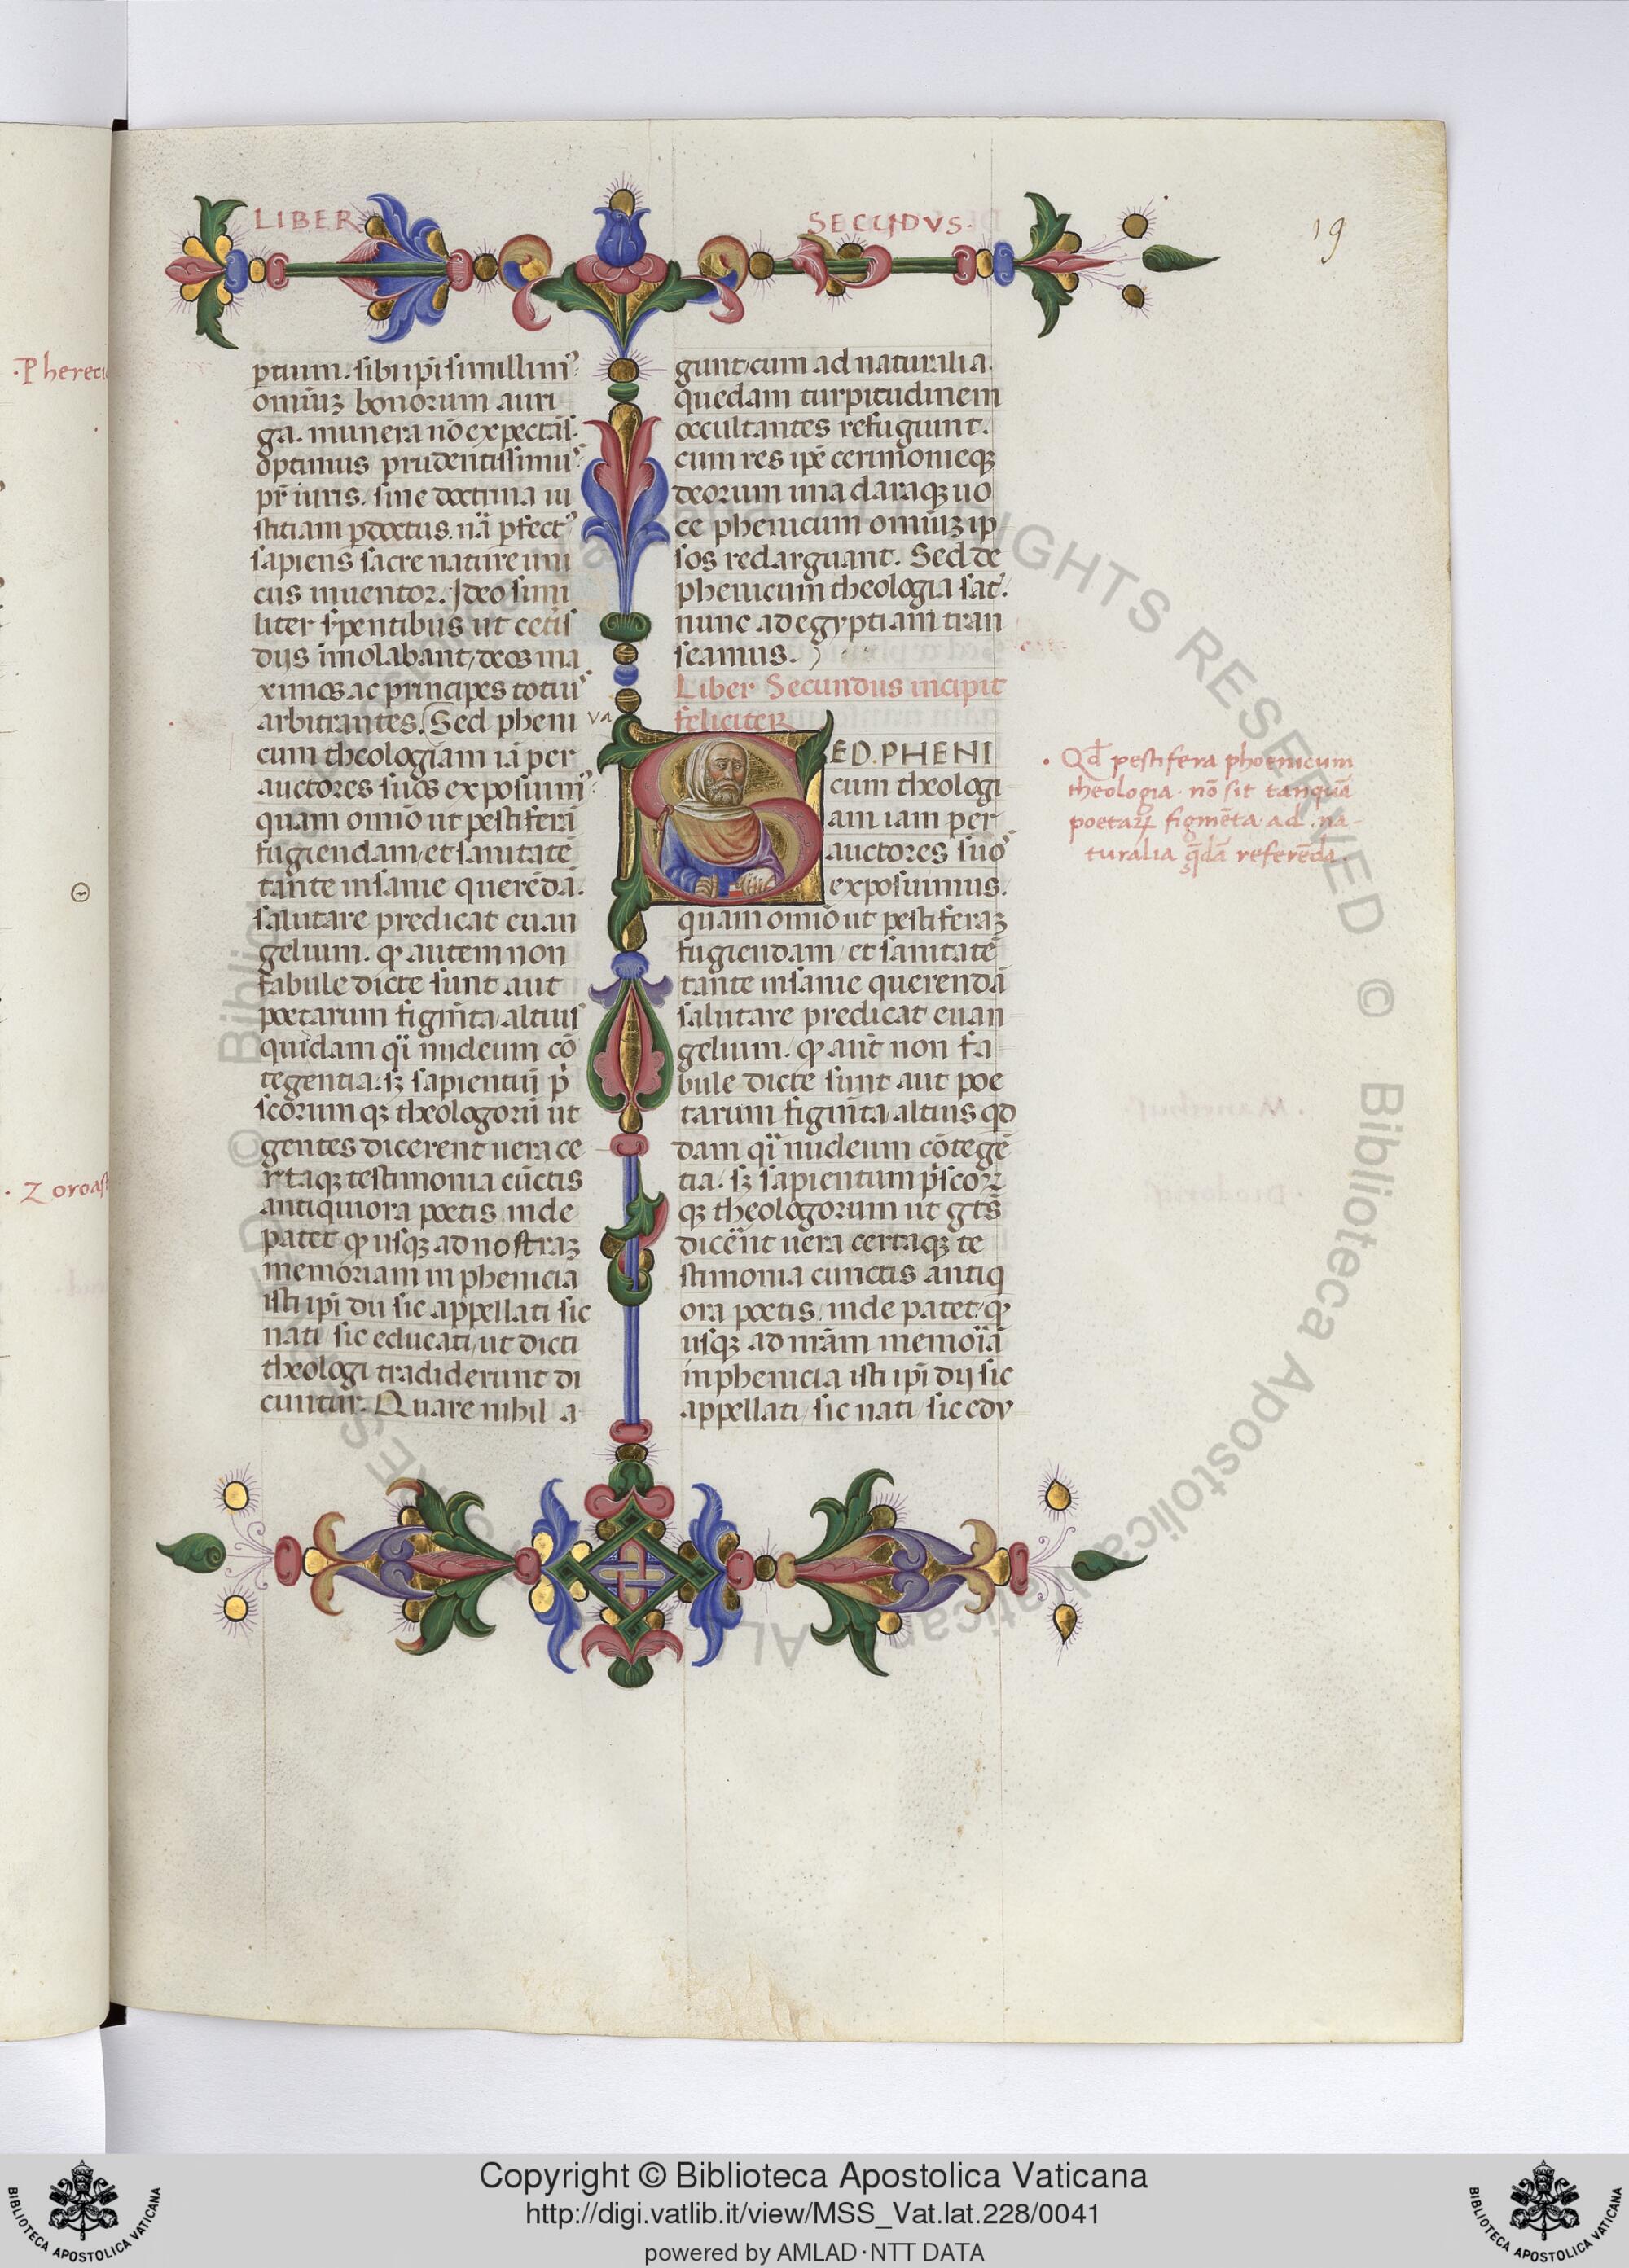 LIBER
SECŪDVS.
19
ptium. sibi ip̄i simillimꝰ
omiūꝫ bonorum auri
ga. munera nō expectās.
optimus prudentissimuˢ
pr̄ iuris. sine doctrina iu
stitiam ꝑdoctus. nā ꝑfectꝰ
sapiens sacre nature uni
cus inuentor. Ideo simi
liter sꝑentibus ut celis
diis imolabant, deos ma
ximos ac principes totiuˢ
arbitrantes. Sed pheni
va
cum theologiam iā per
auctores suos exposuimꝰ
quam omīo ut pestiferā
fugiendam, et sanitatē
tante insanie querēdā.
salutare predicat euan
gelium. ꝙ autem non
fabule dicte sunt aut
poetarum figmīta, altius
quidam qͣi nucleum cō
tegentia. sꝫ sapientuꝫ p̄
scorum qꝫ theologorū ut
gentes dicerent uera ce
rtaqꝫ testimonia cūctis
antiquiora poetis inde
patet ꝙ usqꝫ ad nostraꝫ
memoriam in phenicia
isti ip̄i dii sic appellati sic
nati sic educati, ut dicti
theologi tradiderunt di
cuntur. Quare nihil a
gunt, cum ad naturalia.
quedam turpitudinem
occultantes refugiunt.
cum res ip̄e cerimonieqꝫ
deorum una claraqꝫ uo
ce phenicum omiūꝫ ip
sos redarguant. Sed de
phenicum theologia satˢ.
nunc ad egyptiam tran
seamus.
Liber Secundus incipit
feliciter
SED. PHENI
cum theologi
am iam per
auctores suoˢ
exposuimus.
quam omīo ut pestiferaꝫ
fugiendam, et sanitatē
tante insanie querendā
salutare predicat euan
gelium. ꝙ aut̄ non fa
bule dicte sunt aut poe
tarum figmīta, altius qd
dam qͣi nucleum cōtegē
tia. sꝫ sapientum p̄scoꝝ
qꝫ theologorum ut gt̄s
dicēnt uera certaqꝫ te
stimonia cunctis antiq
ora poetis, inde patet, ꝙ
usqꝫ ad nr̄am memoīā
in phenicia isti ip̄i dij sic
appellati, sic nati, sic edv
·Pherecid
· Zoroast
· Qd̄ pestifera phoenicum
theologia. nō sit tanquā
poetaꝝ figmēta ad na-
turalia q̄dā referēda.
Copyright © Biblioteca Apostolica Vaticana
http://digi.vatlib.it/view/MSS_Vat.lat.228/0041
powered by AMLAD·NTT DATA
BIBLIOTECA APOSTOLICA VATICANA
BIBLIOTECA APOSTOLICA VATICANA
© Biblioteca Apostolica Vaticana ALL RIGHTS RESERVED © Biblioteca Apostolica Vaticana ALL RIGHTS RESERVED